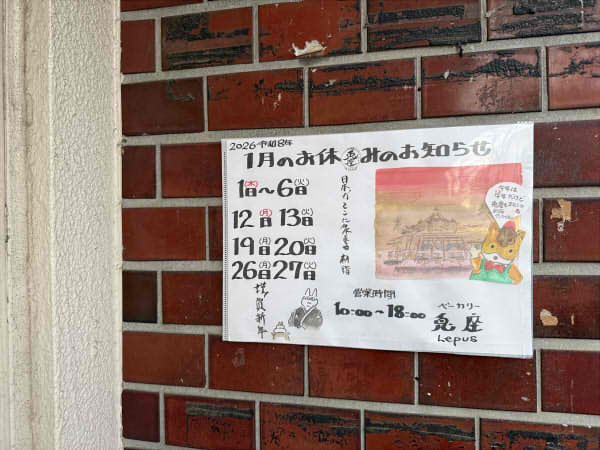 2026 令和8年
1月のお休みのお知らせ
1日(木)〜6日(火)
12日(月) 13日(火)
19日(月) 20日(火)
26日(月) 27日(火)
謹賀新年
営業時間
10:00〜18:00
ベーカリー
兎座
Lepus
今年は